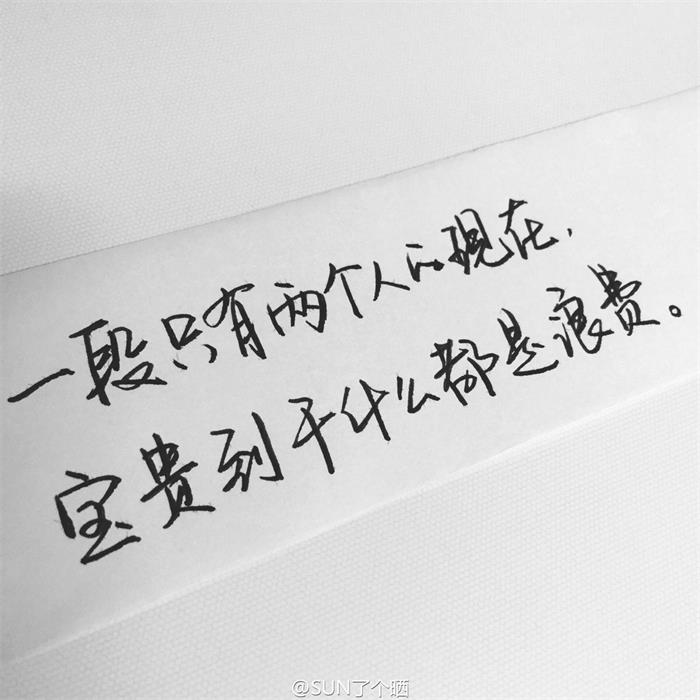 一段只有两个人的现在,
宝贵到干什么都是浪费。
@SUN了个晒